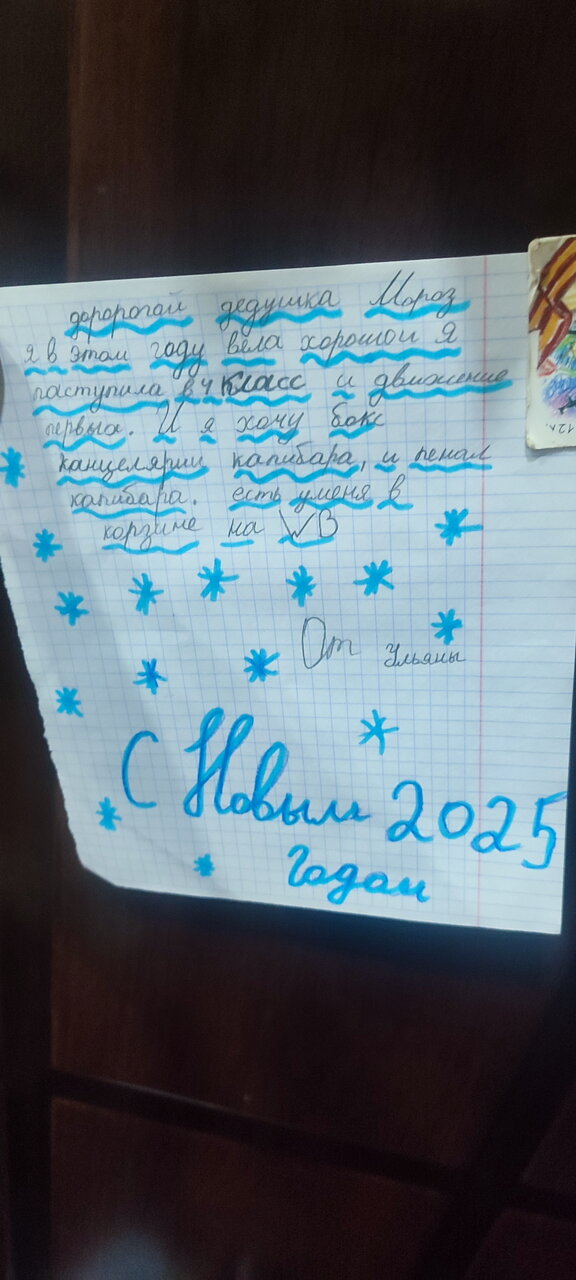 доророгой дедушка Мороз
я в этом году вела хорошои Я
поступила в 4 класс и движение
первых. И я хочу бокс
канцелярии капибара, и пенал
капибара. есть уменя в
корзине на WB
От Ульяны
С Новым 2025
Годом
12л.